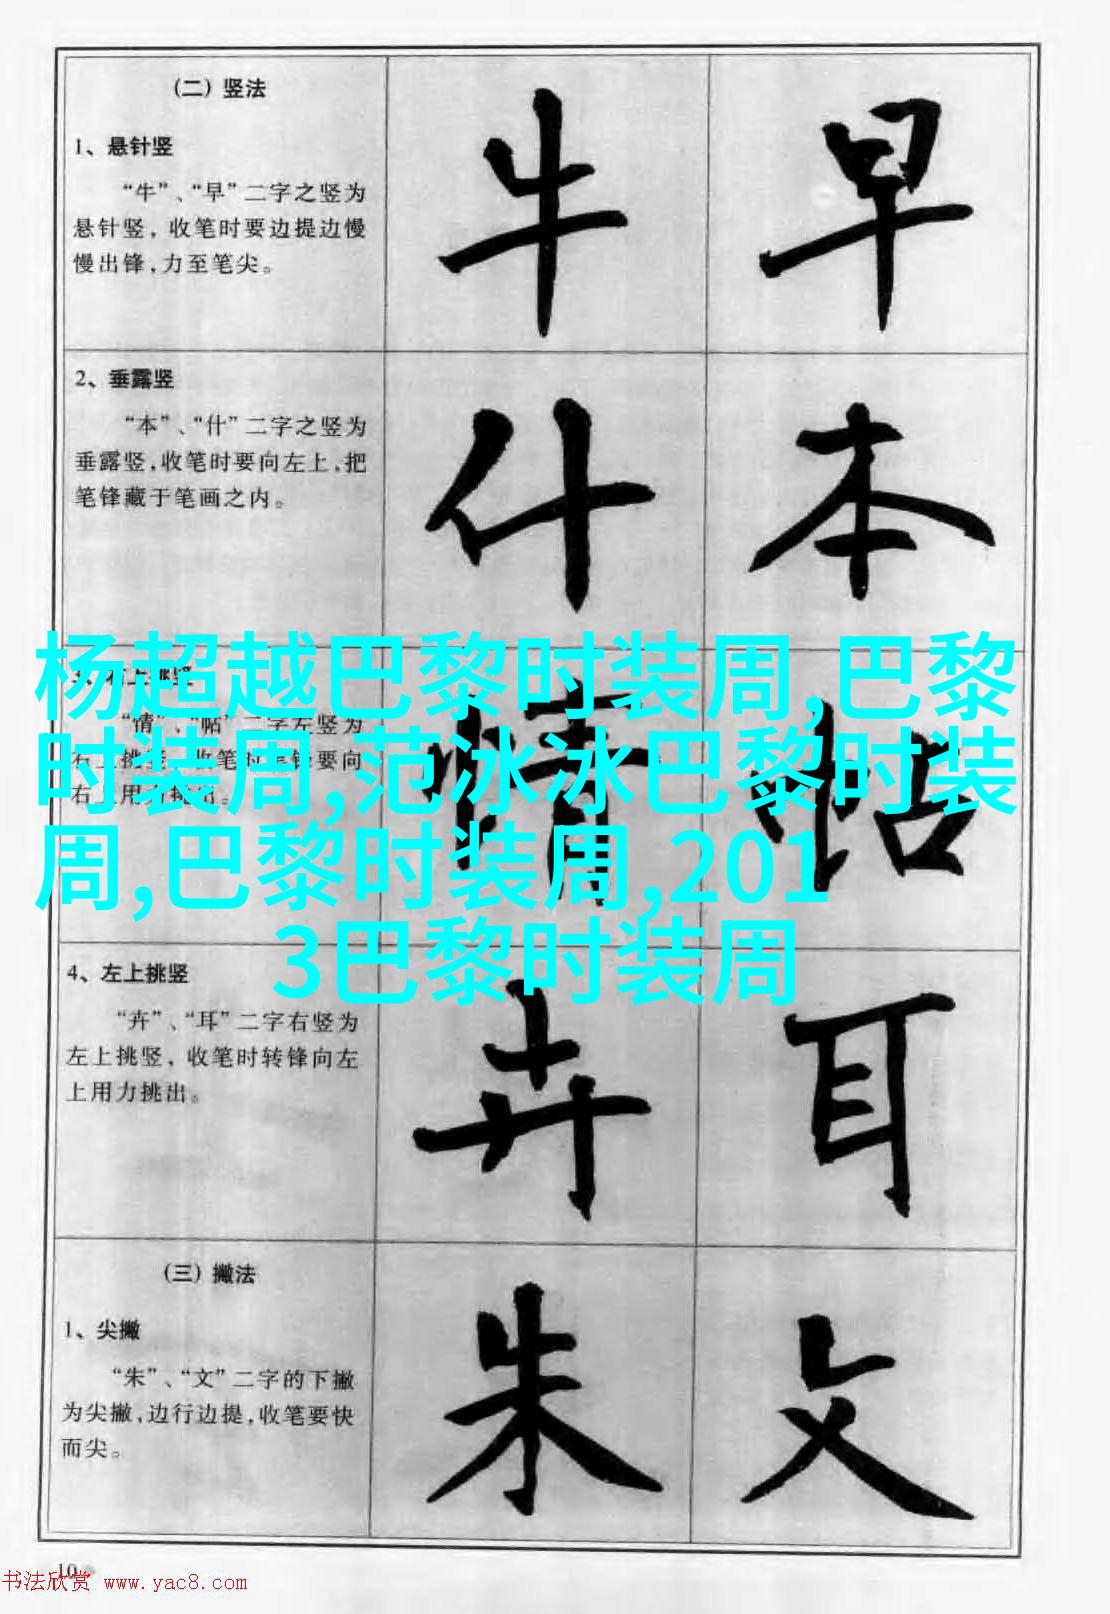 (二) 竖法
1、悬针竖
“牛”、“早”二字之竖为
悬针竖, 收笔时要边提边慢
慢出锋,力至笔尖。
牛 早
2、垂露竖
“本”、“什”二字之竖为
垂露竖,收笔时要向左上,把
笔锋藏于笔画之内。
什 本
杨超越巴黎时装周,巴黎
时装周,范冰冰巴黎时装
周,巴黎时装周,201
3巴黎时装周
3、右上挑竖
“情”、“帖”二字左竖为
右上挑竖,收笔时转锋要向
右上用力挑出。
情 帖
4、左上挑竖
“卉”、“耳”二字右竖为
左上挑竖, 收笔时转锋向左
上用力挑出。
卉 耳
(三) 撇法
1、尖撇
“朱”、“文”二字的下撇
为尖撇,边行边提,收笔要快
而尖。
朱 文
10
书法欣赏 www.yac8.com